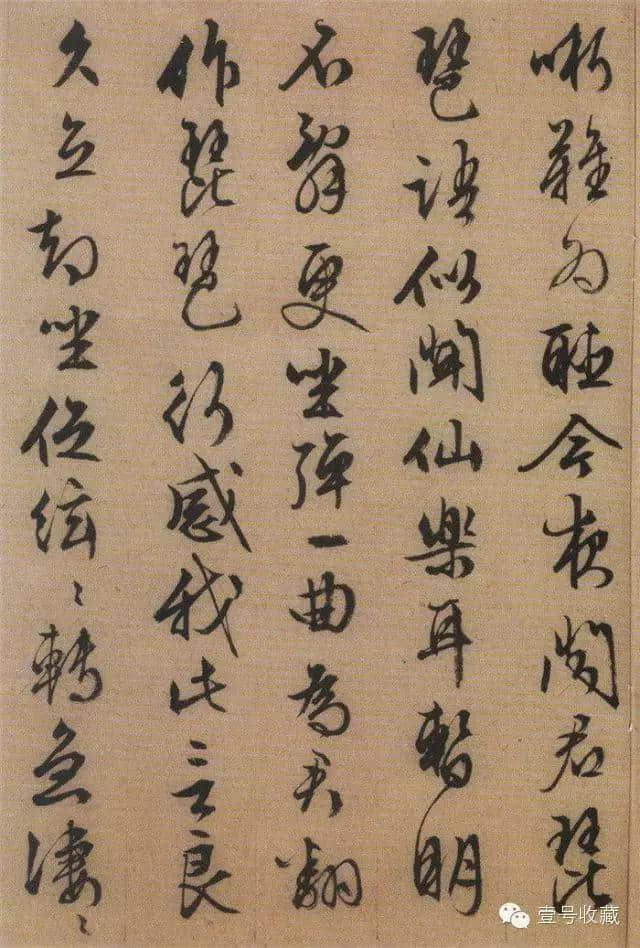 哳難為聽今夜聞君琵
琶語似聞仙樂耳暫明
辭更坐彈一曲為君翻
作琵琶行感我此言良
久立却坐促絃〻轉急凄〻
壹号收藏